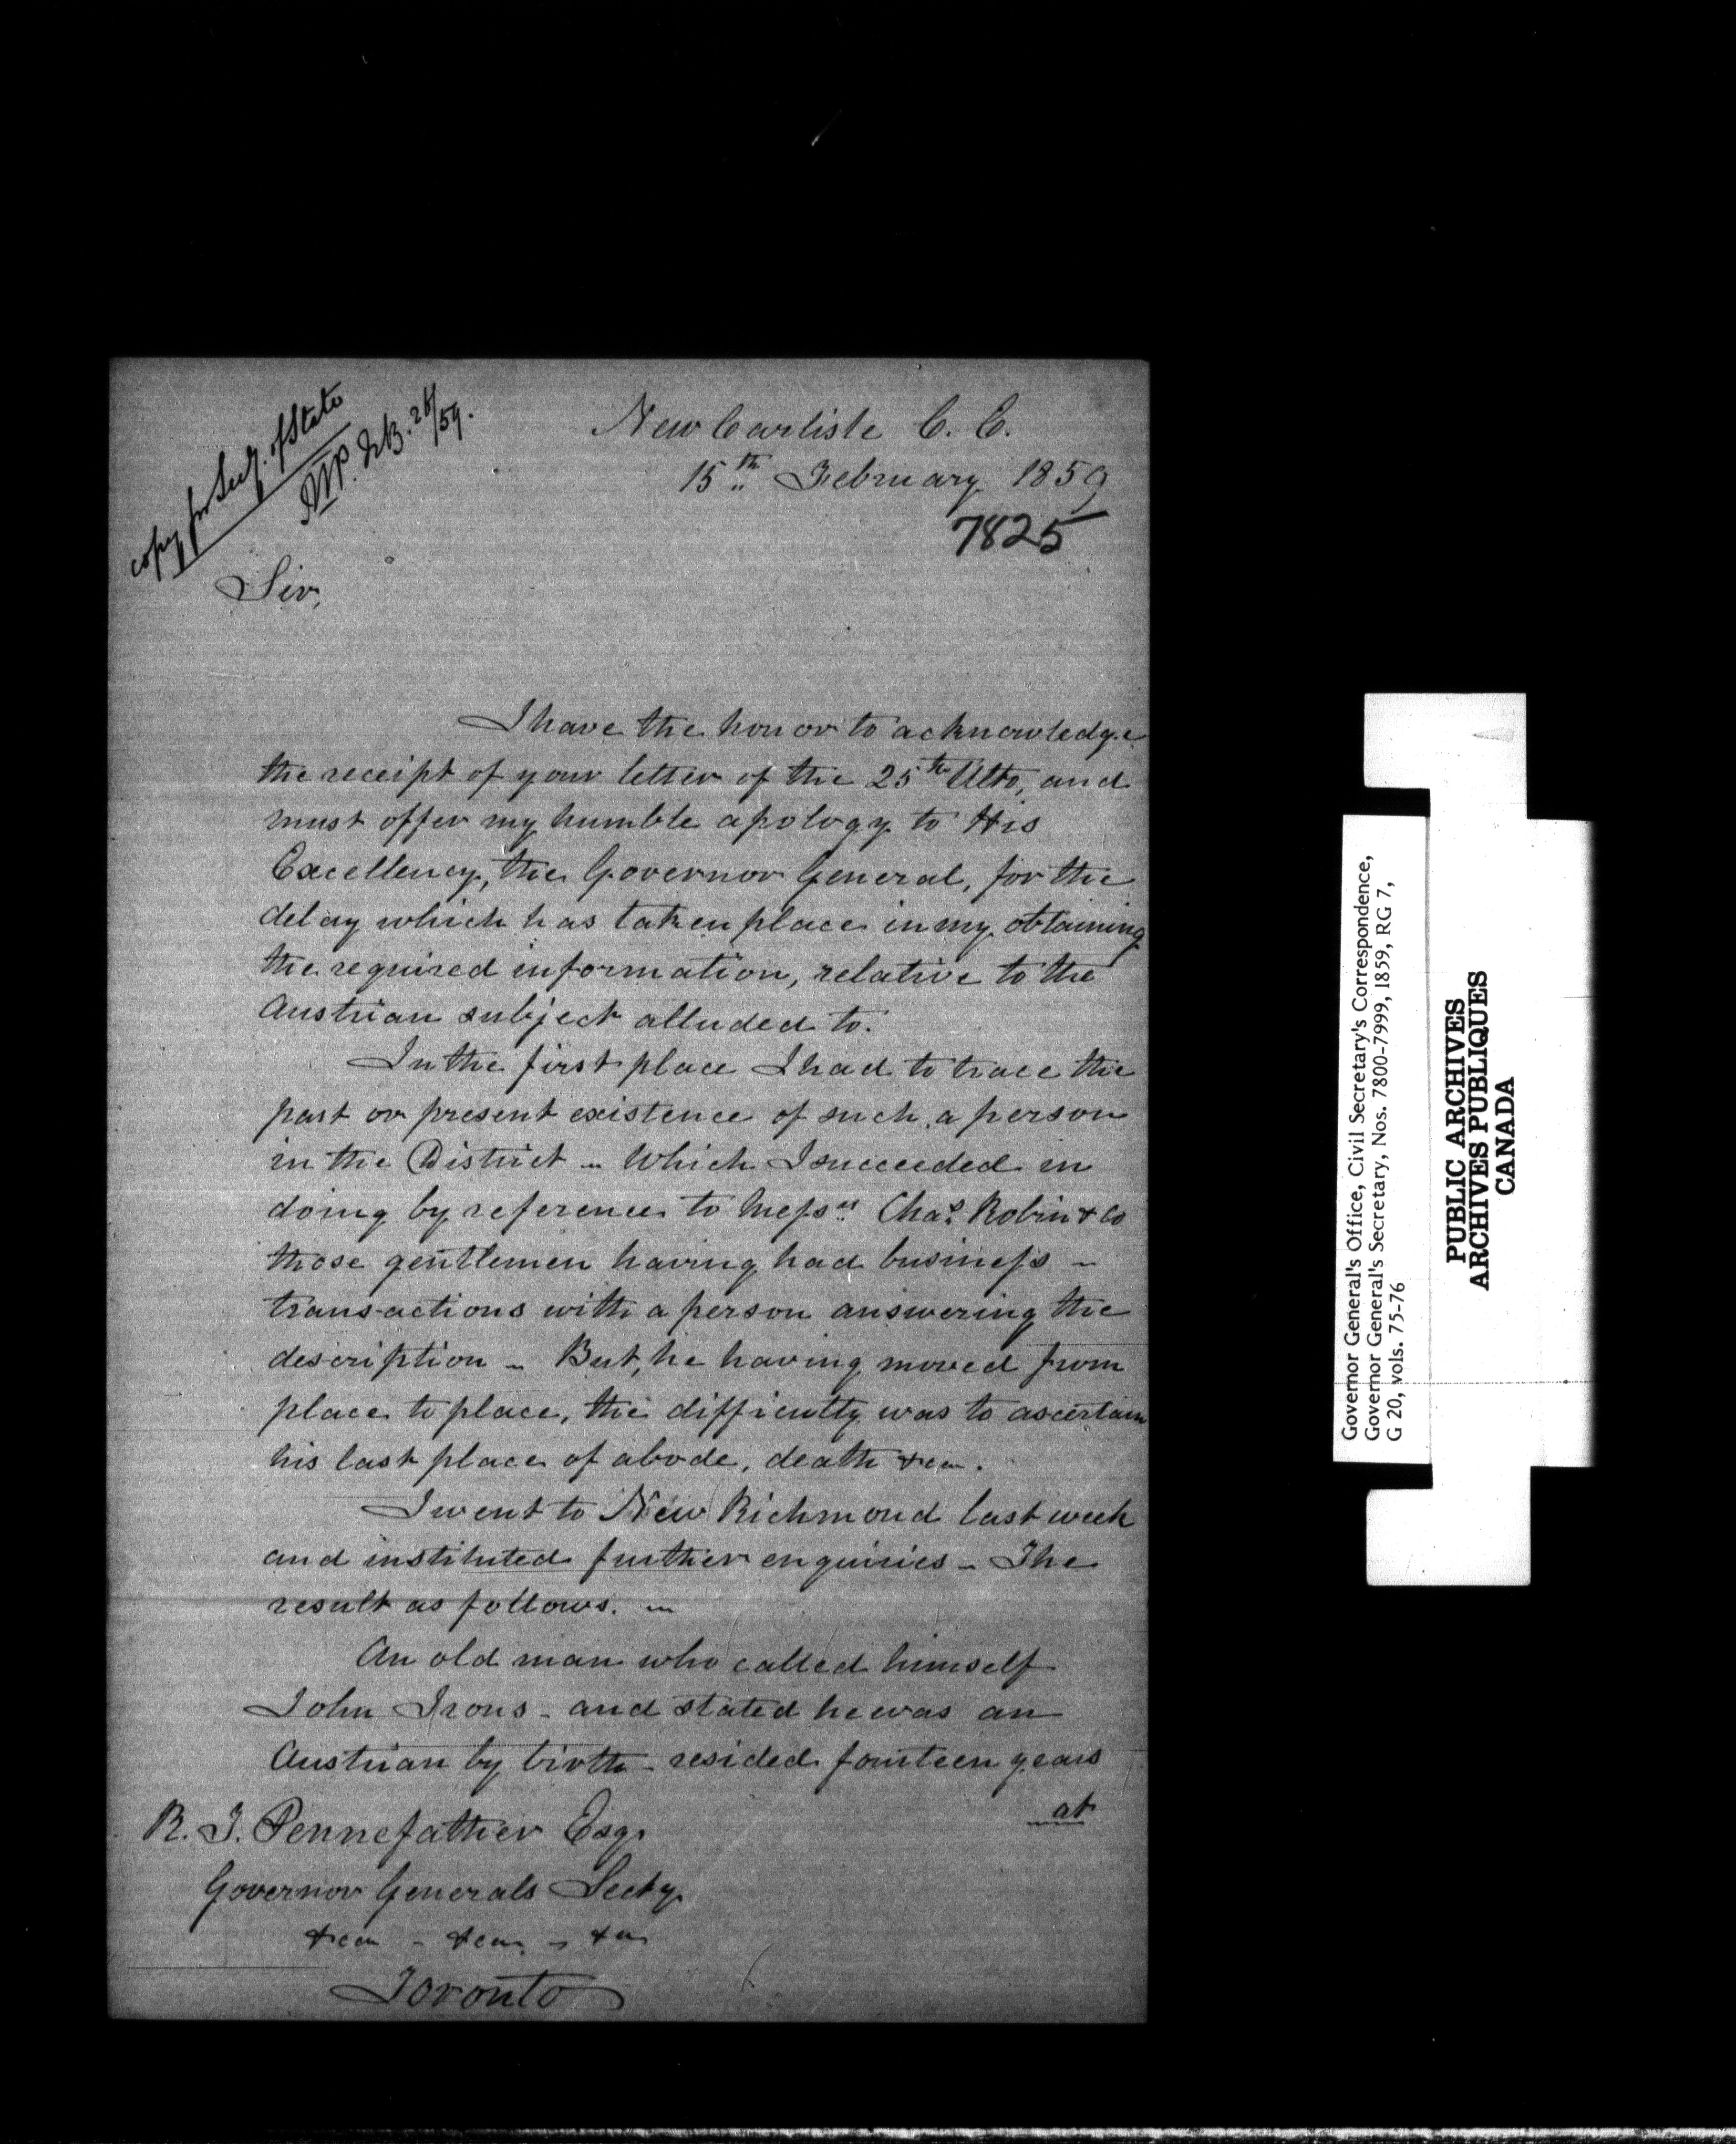 copy for Secy. of State
RTP. Feb. 26/59.
New Carlisle C. E.
15th February 1859
7825
Sir,
I have the honor to acknowledge
the receipt of your letter of the 25th Ulto, and
must offer my humble apology to His
Excellency, the Governor General, for the
delay which has taken place in my obtaining
the required information, relative to the
Austrian subject alluded to.
In the first place I had to trace the
past or present existence of such a person
in the District - Which I succeeded in
doing by reference to Messrs Chas Robin & Co
those gentlemen having had business -
transactions with a person answering the
description - But, he having moved from
place to place, the difficulty was to ascertain
his last place of abode, death &ca.
I went to New Richmond last week
and instituted further enquiries - The
result as follows. -
An old man who called himself
John Irons - and stated he was an
Austrian by birth - resided fourteen years
at
R. T. Pennefather Esqr
Governor Generals Secty
&ca - &ca - &ca
Toronto
Governor General's Office, Civil Secretary's Correspondence,
Governor General's Secretary, Nos. 7800-7999, 1859, RG 7,
G 20, vols. 75-76
PUBLIC ARCHIVES
ARCHIVES PUBLIQUES
CANADA